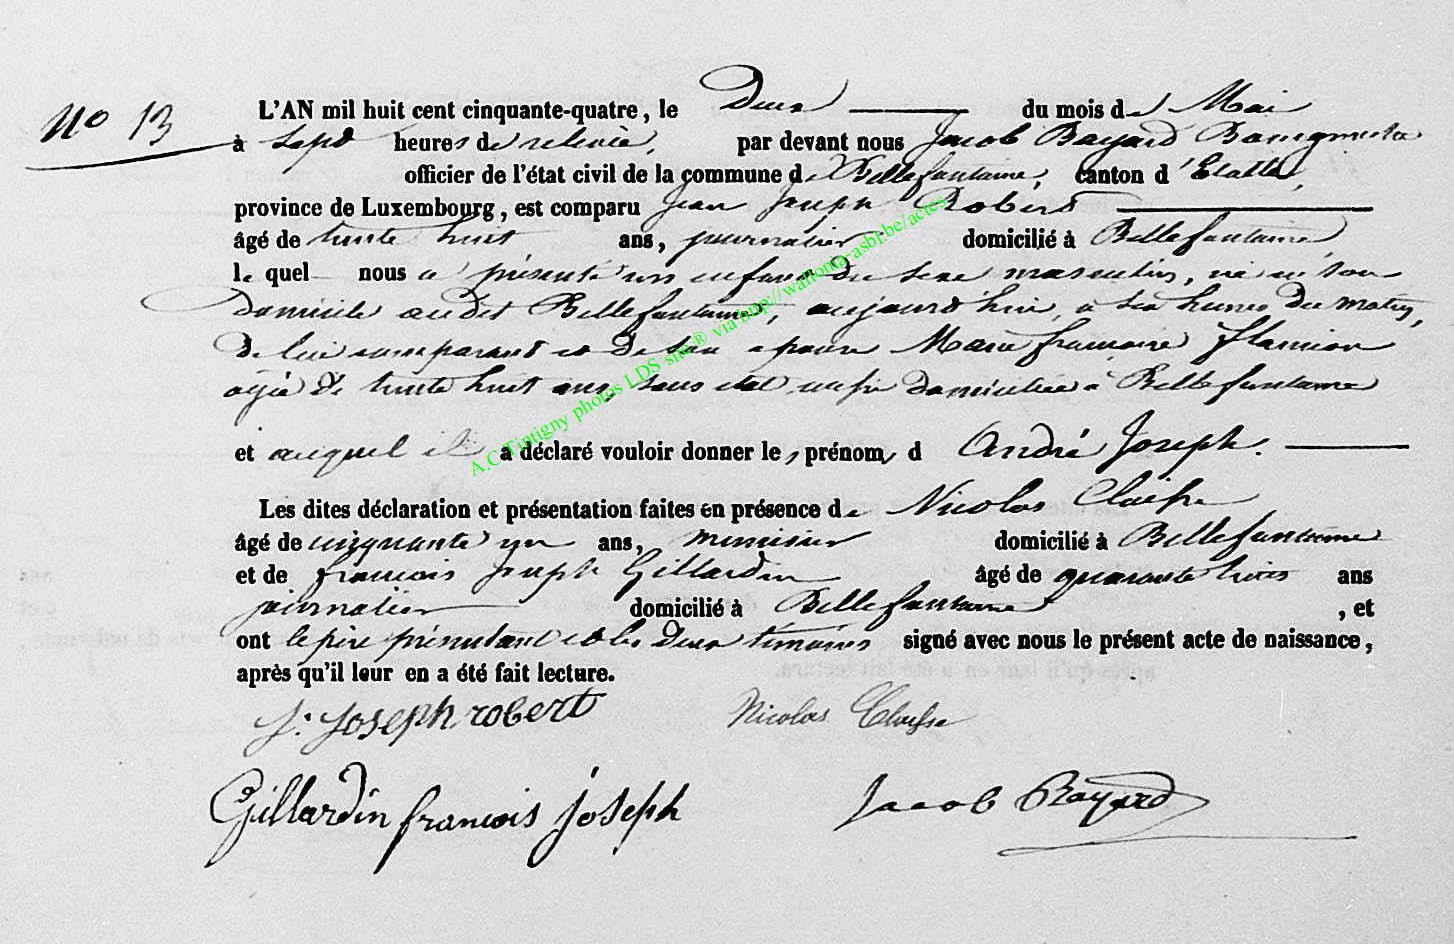 N° 13
L'AN mil huit cent cinquante-quatre, le Deux du mois de Mai
à sept heures de relevée, par devant nous Jacob Bayard Bourgmestre
officier de l'état civil de la commune de Bellefontaine, canton d'Etalle,
province de Luxembourg, est comparu Jean Joseph Robert
âgé de trente huit ans, journalier domicilié à Bellefontaine
le quel nous a présenté un enfant du sexe masculin, né en son
domicile au dit Bellefontaine, aujourd'hui, à six heures du matin,
de lui comparant et de son épouse Marie françoise flamion
agée de trente huit ans, sans état, domiciliée à Bellefontaine
et auquel il a déclaré vouloir donner les prénoms d André Joseph.
Les dites déclaration et présentation faites en présence de Nicolas Claisse
âgé de cinquante un ans, menuisier domicilié à Bellefontaine
et de francois Joseph Gillardin âgé de quarante trois ans
journalier domicilié à Bellefontaine, et
ont le père présentant et les deux témoins signé avec nous le présent acte de naissance,
après qu'il leur en a été fait lecture.
J. Joseph robert Nicolas Claisse
Gillardin francois joseph Jacob Bayard
A.C. Tintigny photos LDS site® via http://wallonia-asbl.be/actes